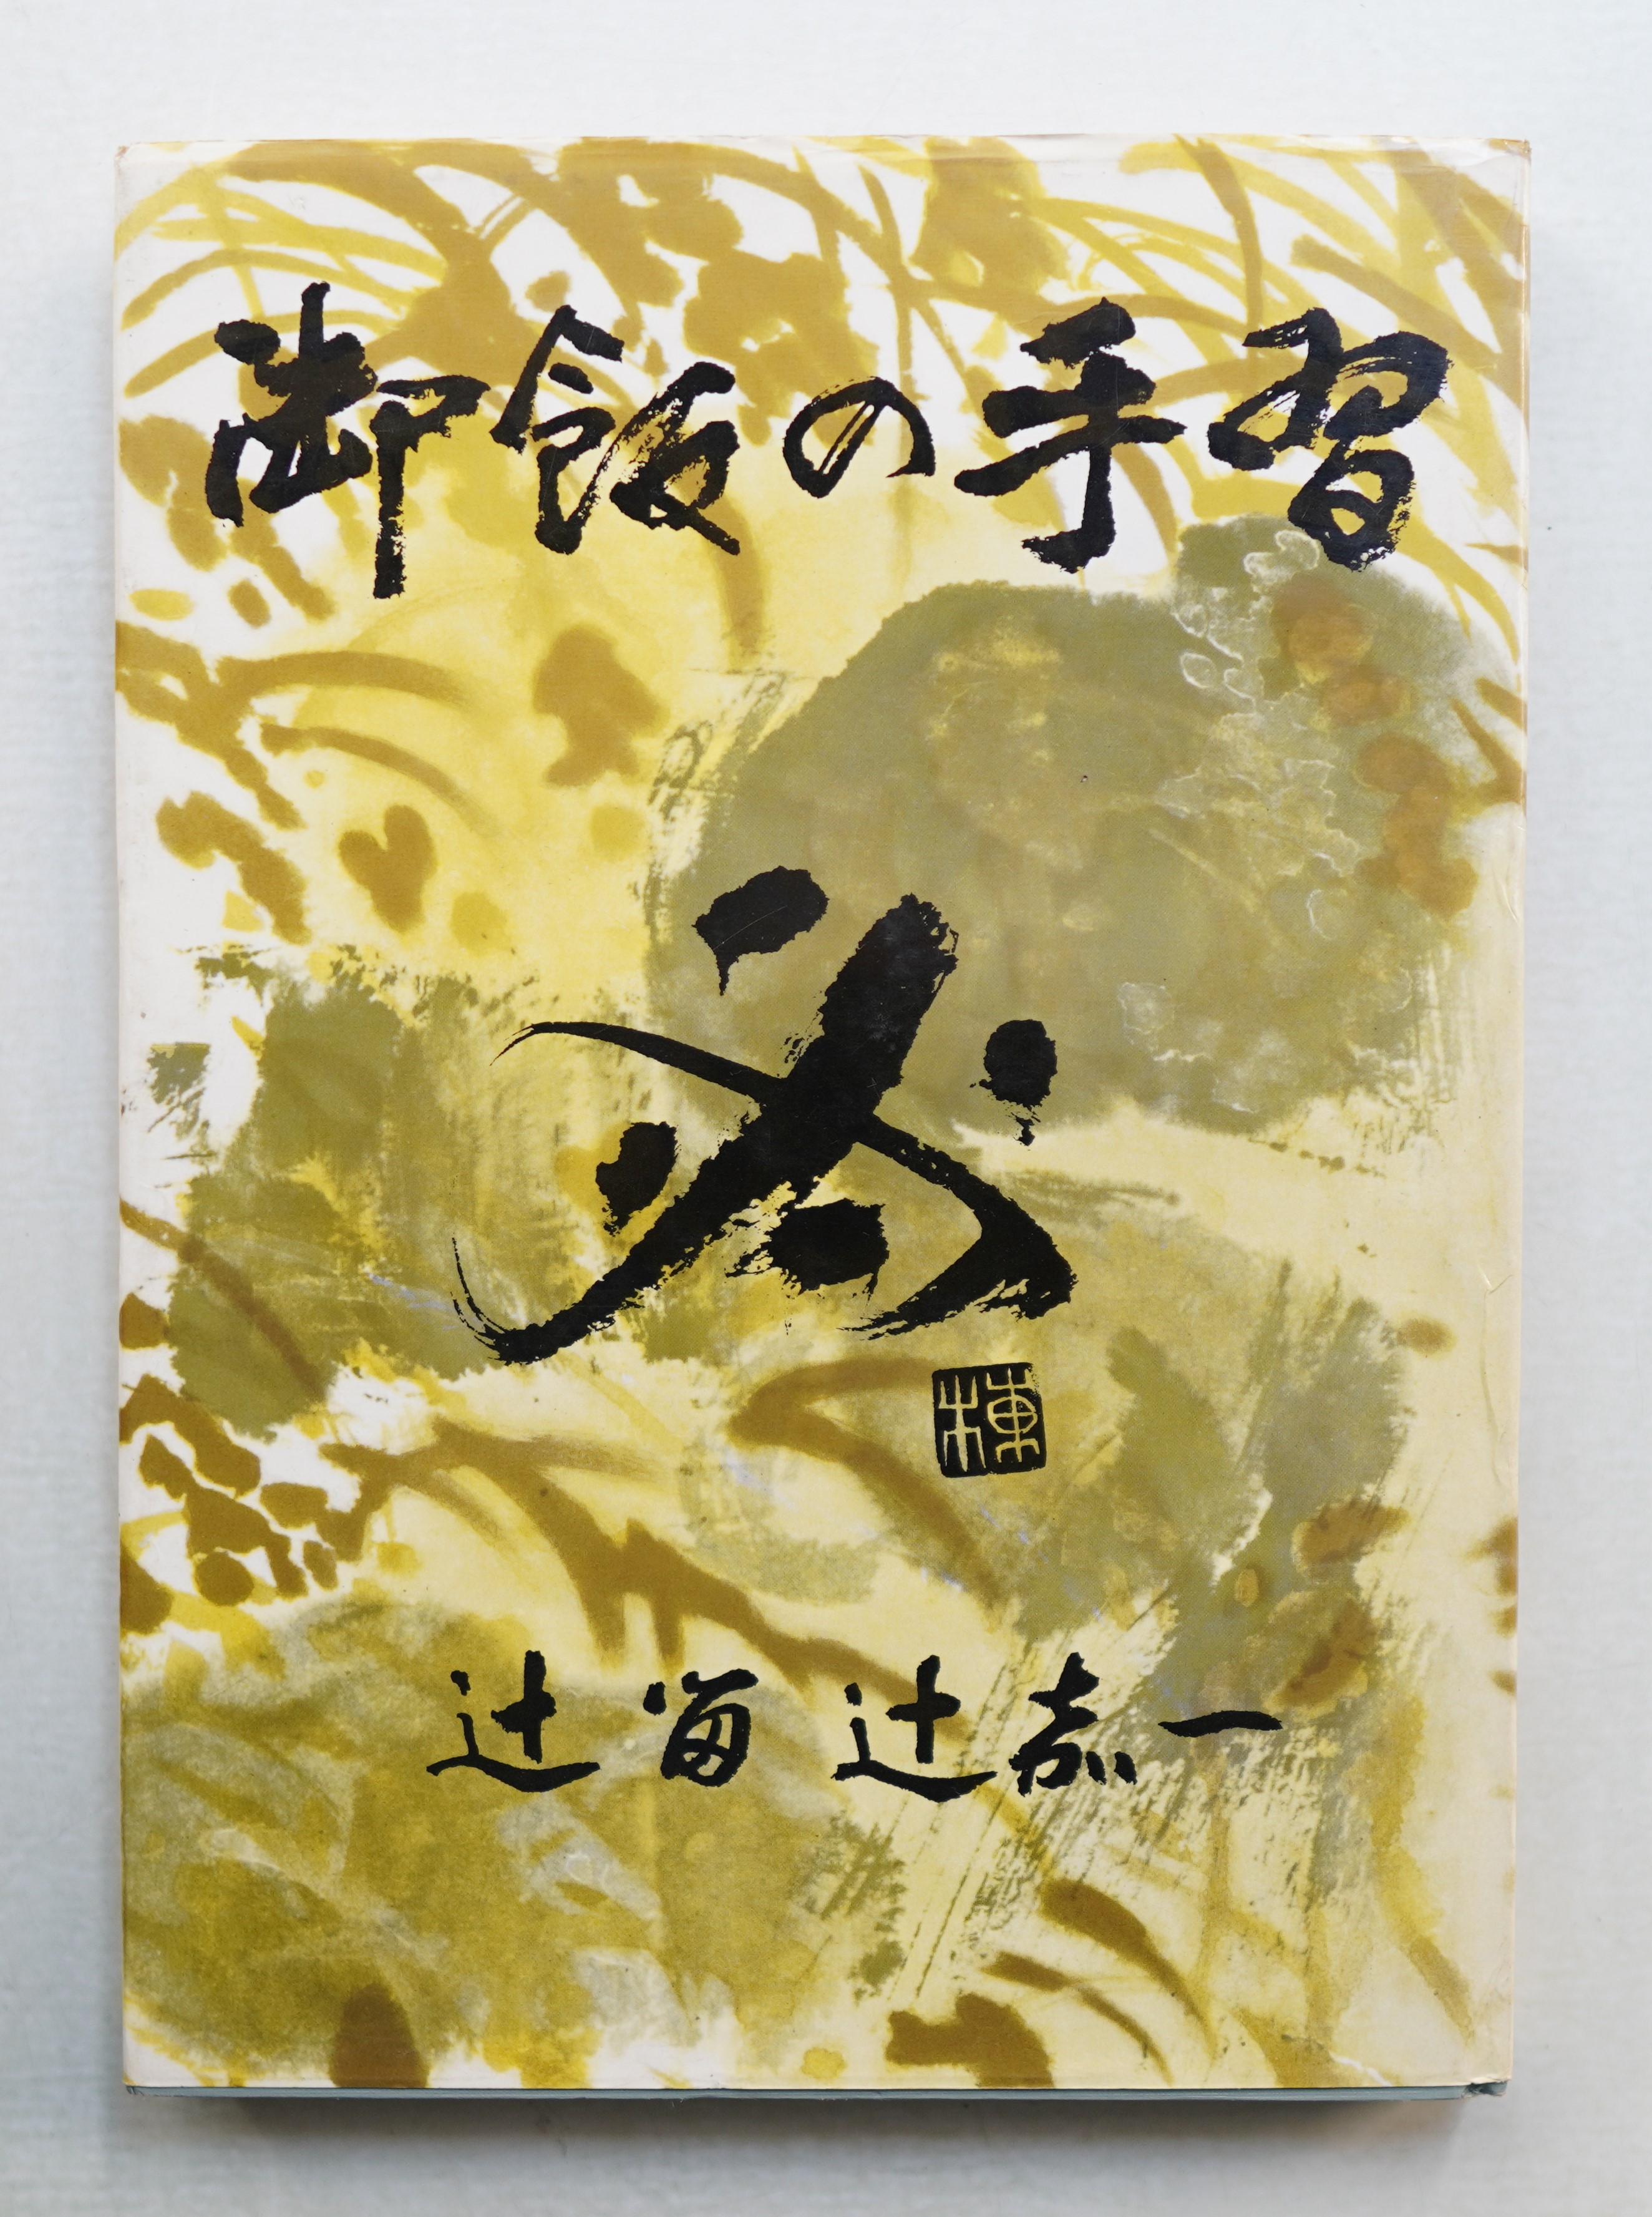 御飯の手習
棟
辻留 辻嘉一